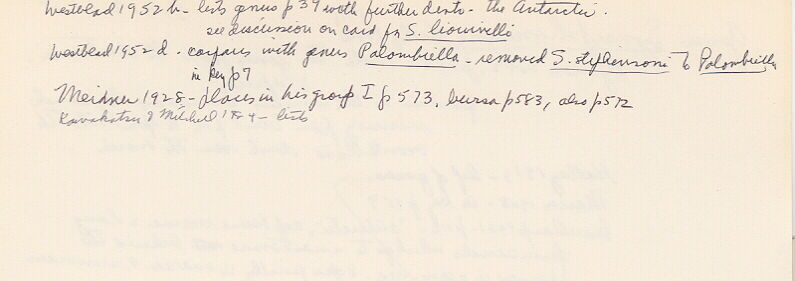 Westblad 1952 b - lists genus p 39 with further distr - the Antarctic.
see discussion on card for S. liouvilli
Westblad 1952 d. compares with genus Palombiella - removed S. stephensoni to Palombiella
in key p 7
Meixner 1928 - places in his group I p 573, bursa p 583, also p 572
Kawakatsu & Mitchell - lists